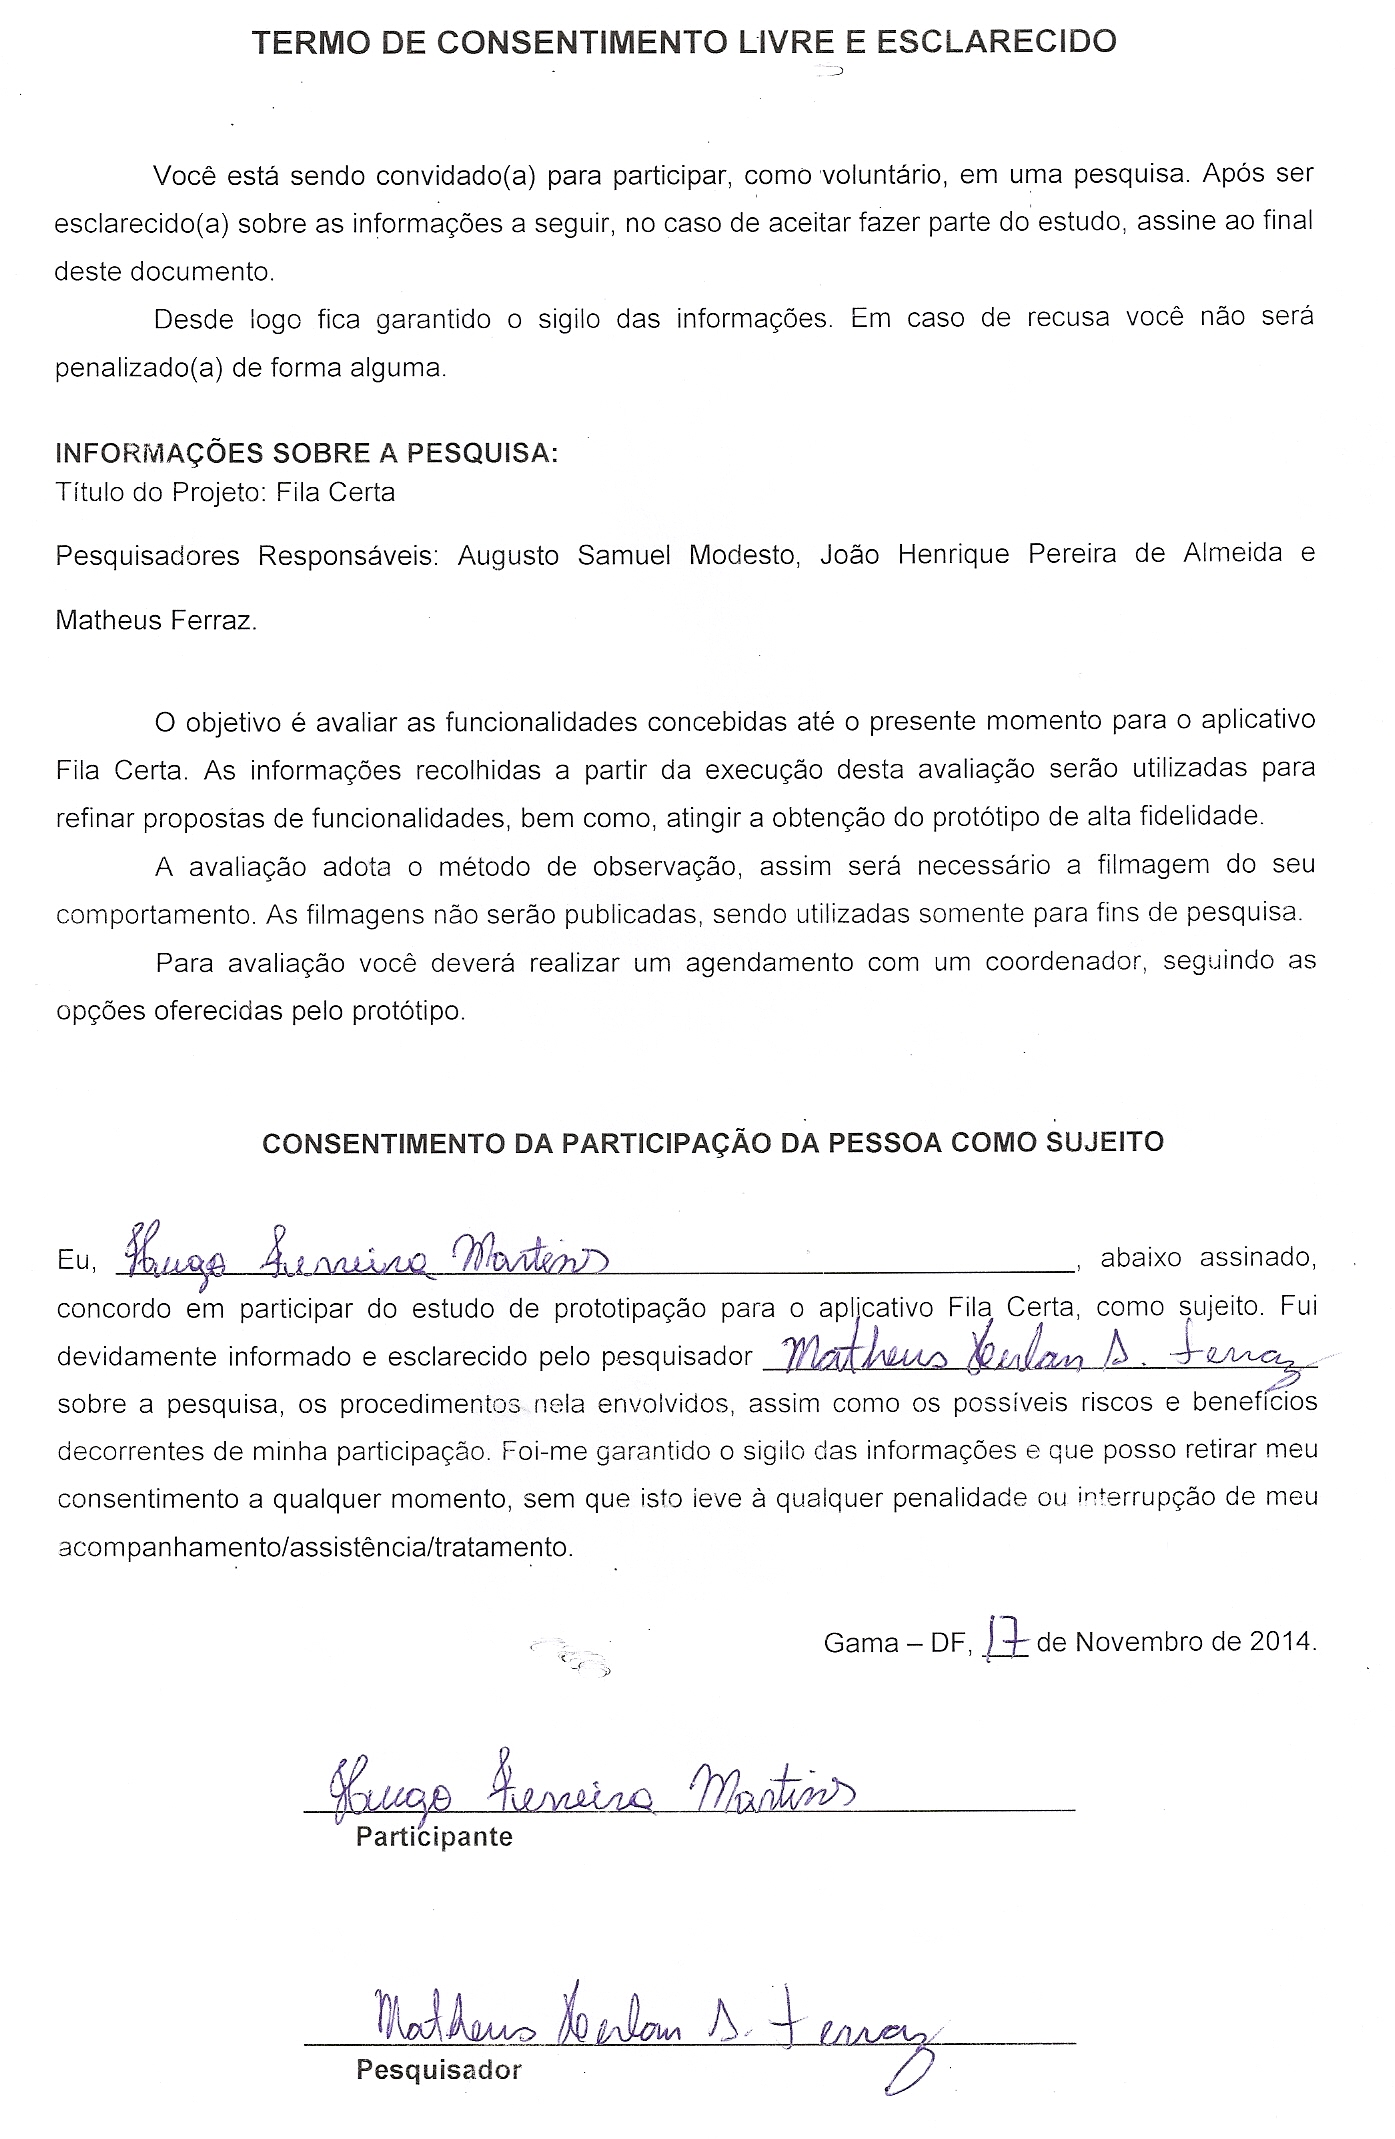 TERMO DE CONSENTIMENTO LIVRE E ESCLARECIDO
Você está sendo convidado(a) para participar, como voluntário, em uma pesquisa. Após ser
esclarecido(a) sobre as informações a seguir, no caso de aceitar fazer parte do estudo, assine ao final
deste documento.
Desde logo fica garantido o sigilo das informações. Em caso de recusa você não será
penalizado(a) de forma alguma.
INFORMAÇÕES SOBRE A PESQUISA:
Título do Projeto: Fila Certa
Pesquisadores Responsáveis: Augusto Samuel Modesto, João Henrique Pereira de Almeida e
Matheus Ferraz.
O objetivo é avaliar as funcionalidades concebidas até o presente momento para o aplicativo
Fila Certa. As informações recolhidas a partir da execução desta avaliação serão utilizadas para
refinar propostas de funcionalidades, bem como, atingir a obtenção do protótipo de alta fidelidade.
A avaliação adota o método de observação, assim será necessário a filmagem do seu
comportamento. As filmagens não serão publicadas, sendo utilizadas somente para fins de pesquisa.
Para avaliação você deverá realizar um agendamento com um coordenador, seguindo as
opções oferecidas pelo protótipo.
CONSENTIMENTO DA PARTICIPAÇÃO DA PESSOA COMO SUJEITO
Eu, Hugo Ferreira Martins, abaixo assinado,
concordo em participar do estudo de prototipação para o aplicativo Fila Certa, como sujeito. Fui
devidamente informado e esclarecido pelo pesquisador Matheus S. Ferraz
sobre a pesquisa, os procedimentos nela envolvidos, assim como os possíveis riscos e benefícios
decorrentes de minha participação. Foi-me garantido o sigilo das informações e que posso retirar meu
consentimento a qualquer momento, sem que isto leve à qualquer penalidade ou interrupção de meu
acompanhamento/assistência/tratamento.
Gama – DF, 17 de Novembro de 2014.
Hugo Ferreira Martins
Participante
Matheus S. Ferraz
Pesquisador